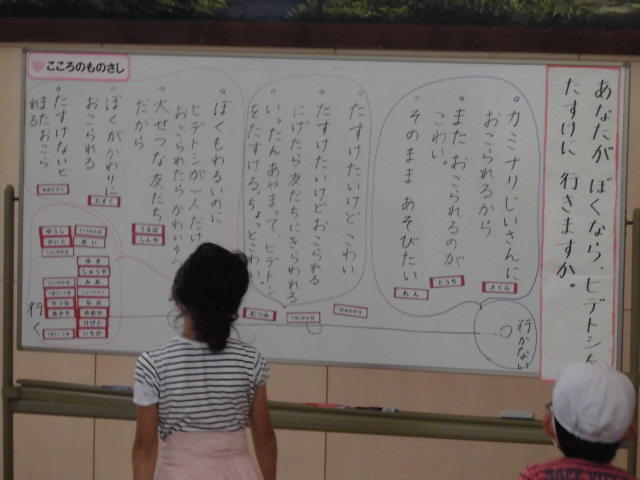 こころのものさし
あなたが ぼくなら、ヒデトシくん
たすけに 行きますか。
行かない
・カミナリじいさんに
おこられるから
・また おこられるのが
こわい。
・そのまま あそびたい
さくら
とうり
れん
・たすけたいけど こわい
・たすけたいけどおこられる
・にげたら友だちにきらわれる
・いったんあやまって、ヒデトシ
をたすける。ちょっとこわい。
むつみ
・ぼくもわるいのに
ヒデトシが一人だけ
おこられたらかわいそう
・大せつな友だち
だから
うるは
しんや
・ぼくがかわりに
おこられる
たまく
・たすけないと
またおこら
れる
ゆうし
かいと
めい
ゆき
しゅうや
みあ
ゆづな
なお
あかり
ゆめか
ひびと
いちか
行く